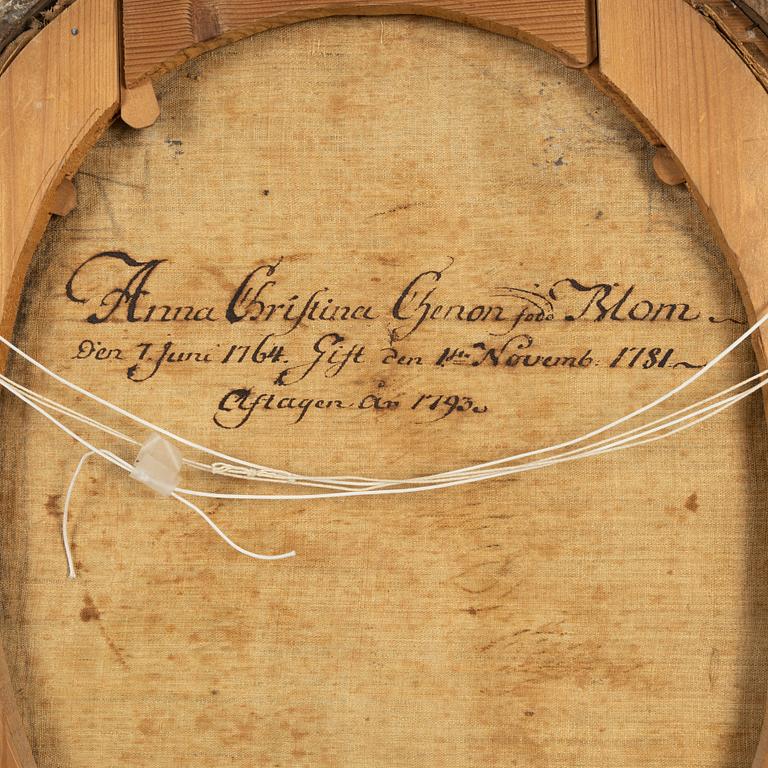 Anna Christina Chenon född Blom
den 7 Juni 1764. Gift den 1ste Novemb: 1781
Aftagen År 1793.